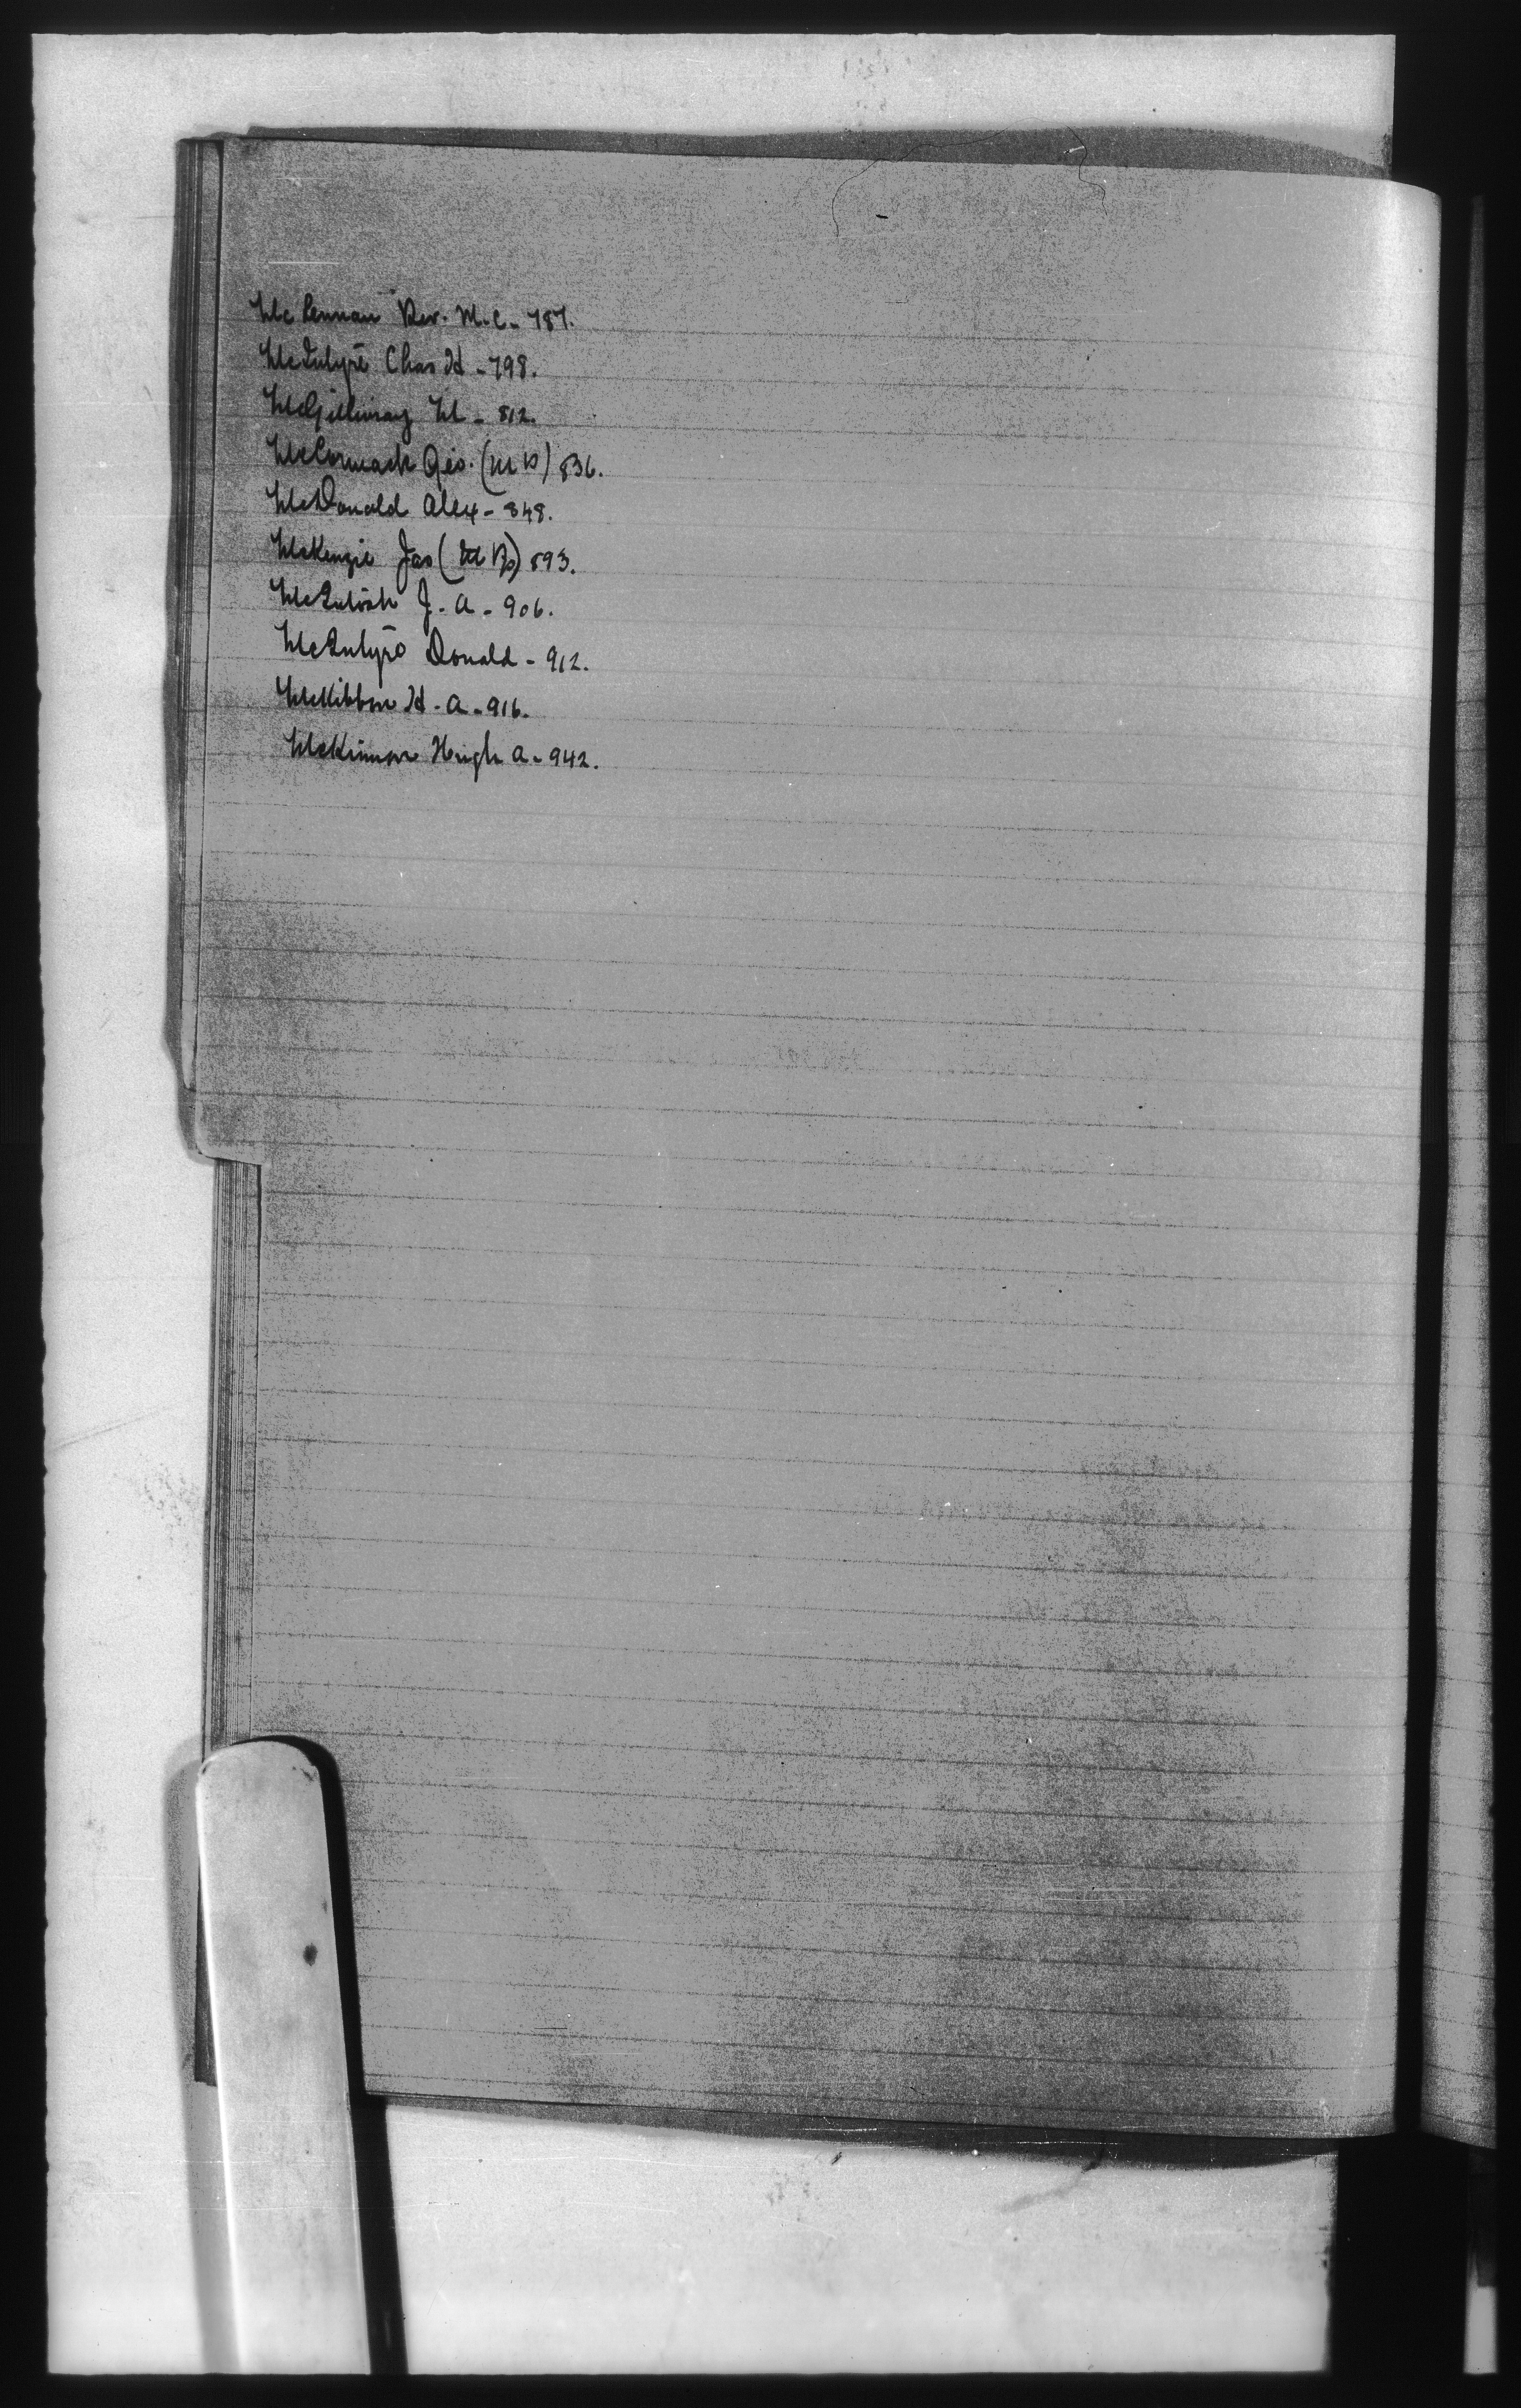 McLennan Rev. M. C - 787.
McIntyre Chas H - 798.
McGillivray M - 812.
McCormack Geo. (M P) 836.
McDonald Alex - 848.
McKenzie Jas (M P) 893.
McIntosh J. A - 906.
McIntyre Donald - 912.
McKibbon H. A - 916.
McKinnon Hugh A - 942.